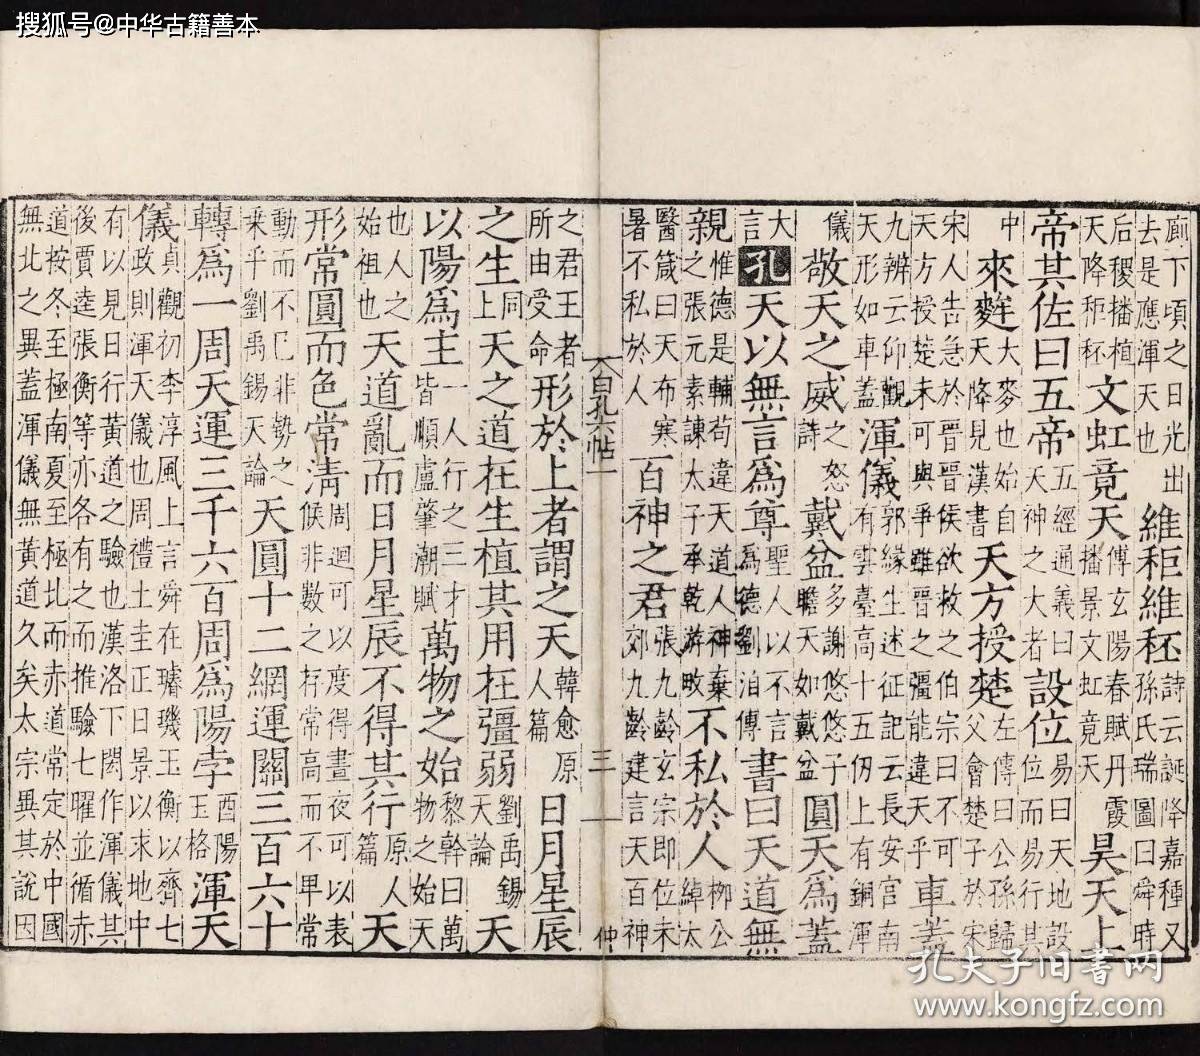 搜狐号@中华古籍善本
廁下頃之日光出去是應渾天也維秬維秠詩云誕降嘉種又孫氏瑞圖曰舜時
后稷播植天降秬秠文虹竟天傅玄陽春賦丹霞播景文虹竟天昊天上
帝其佐曰五帝五經通義曰天神之大者設位易曰天地設位而易行其
中來麰大麥也始自天降見漢書天方授楚左傳曰公孫歸父會楚子於宋
宋人告急於晉晉侯欲救之伯宗曰不可天方授楚未可與爭雖晉之彊能違天乎車蓋
九辨云仰觀天形如車蓋渾儀郭緣生述征記云長安宮南有雲臺高十五仞上有銅渾
儀敬天之威詩之怒戴盆多謝悠悠子瞻天如戴盆圓天爲蓋
大言孔天以無言爲尊聖人以不言爲德劉洎傳書曰天道無
親惟德是輔苟違天道人神棄之張元素諫太子承乾游畋不私於人柳公綽太
醫箴曰天布寒暑不私於人百神之君張九齡玄宗即位未郊九齡建言天百神
白孔六帖一 三 仲
之君王者所由受命形於上者謂之天韓愈原人篇日月星辰
之生同上天之道在生植其用在彊弱劉禹錫天論天
以陽爲主一人行之三才皆順盧肇潮賦萬物之始黎幹曰萬物之始天
也人之始祖也天道亂而日月星辰不得其行原人篇天
形常圓而色常清周迴可以度得晝夜可以表候非數之存常高而不卑常
動而不已非勢之乗乎劉禹錫天論天圓十二綱運關三百六十
轉爲一周天運三千六百周爲陽孛酉陽玉格渾天
儀貞觀初李淳風上言舜在璿璣玉衡以齊七政則渾天儀也周禮土圭正日景以求地中
有以見日行黃道之驗也漢洛下閎作渾儀其後賈逵張衡等亦各有之而推驗七曜並循赤
道按冬至極南夏至極北而赤道常定於中國無北之異蓋渾儀無黃道久矣太宗異其說因
孔夫子旧书网
www.kongfz.com